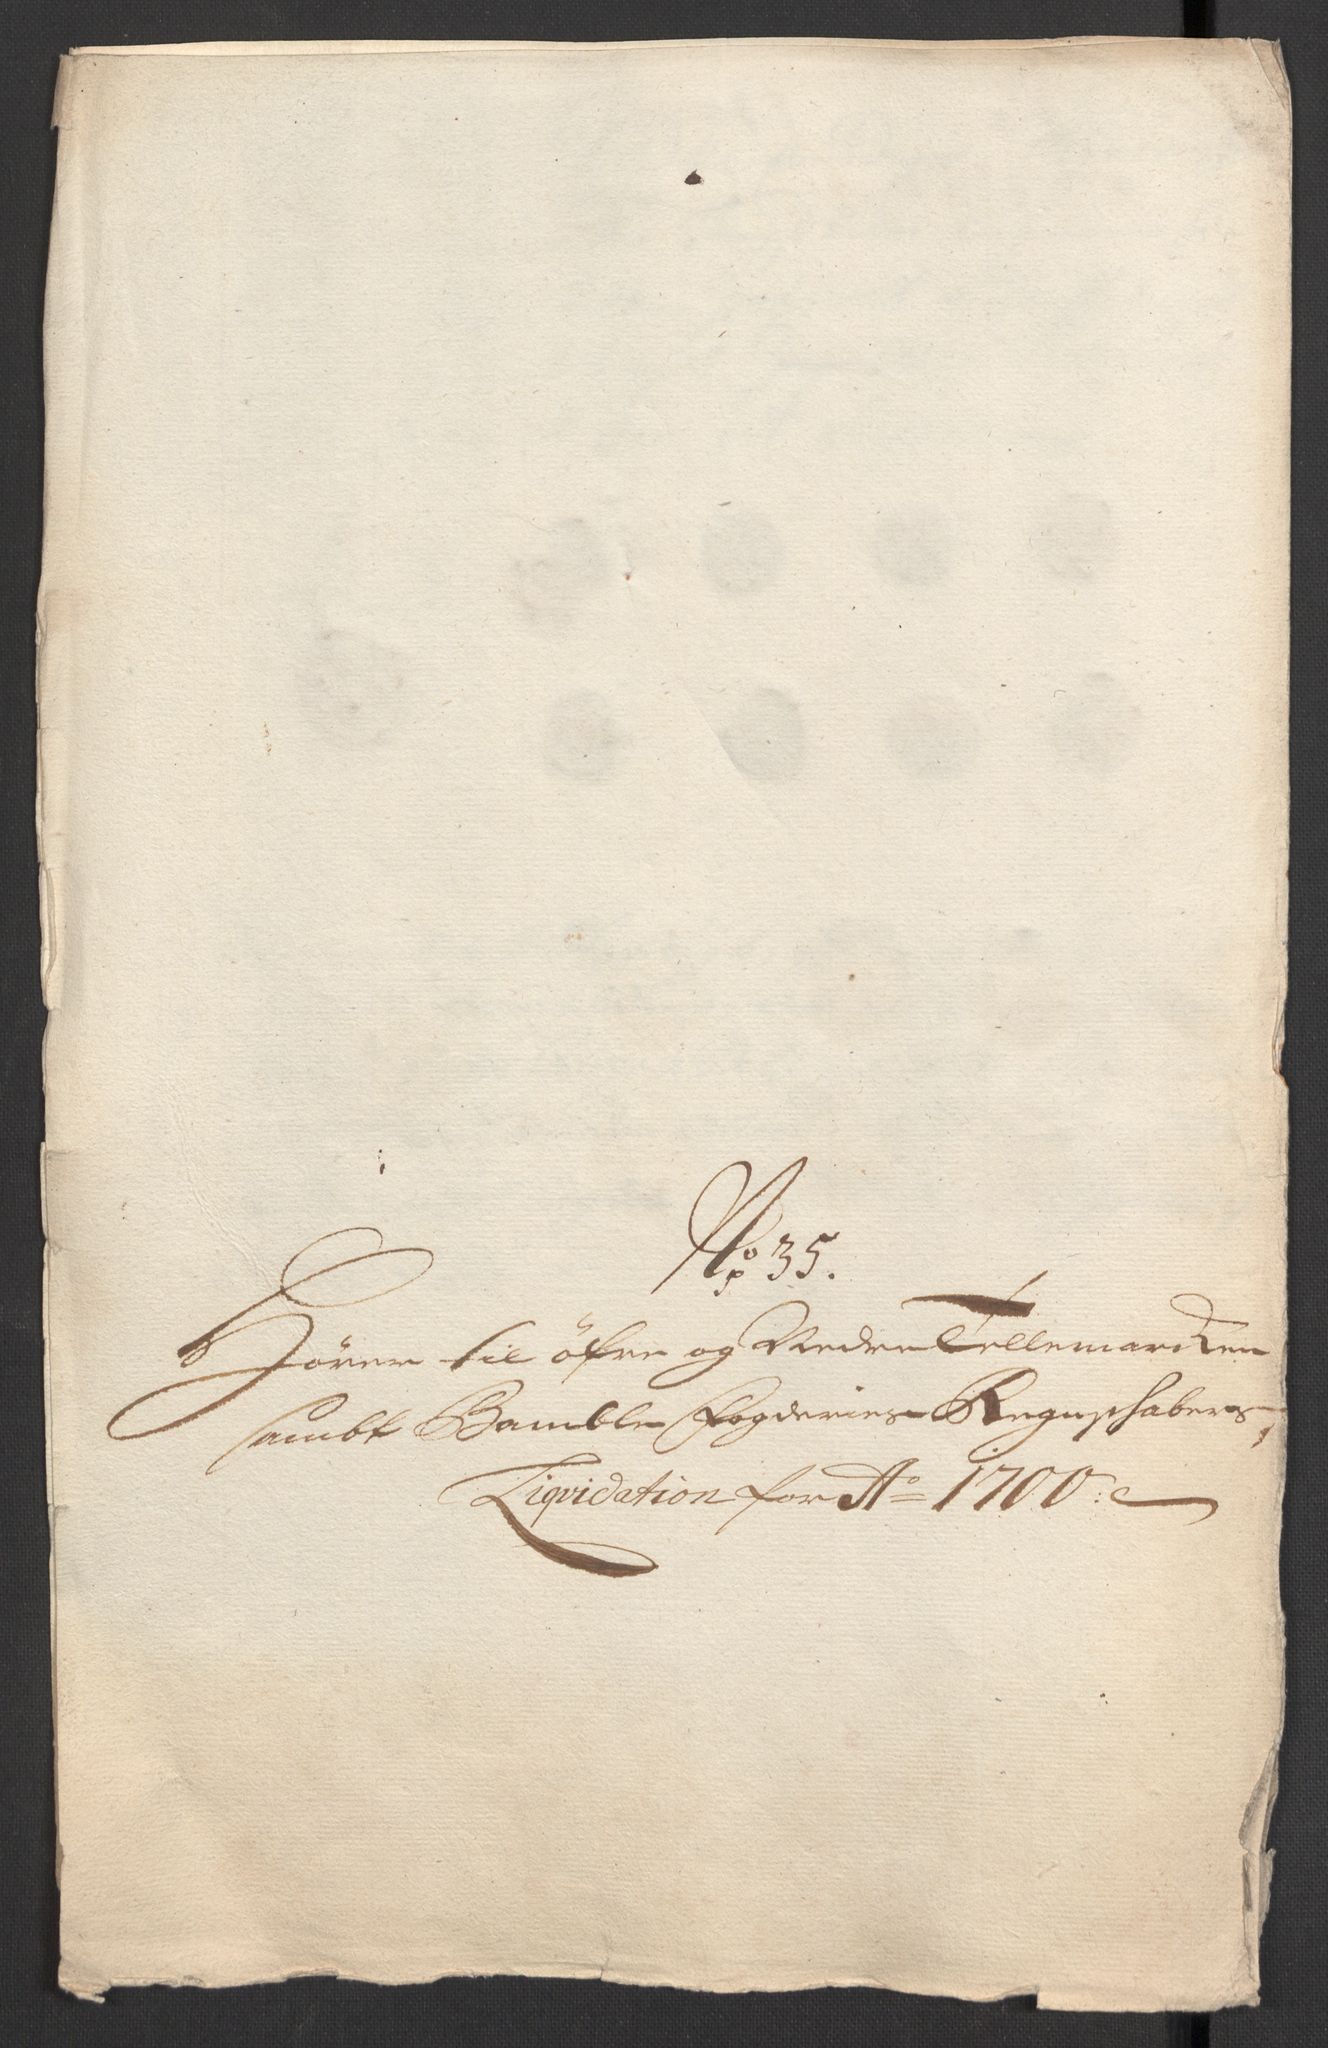 No 35.
Hörer til öfre og Nedre Tellemarcken
sambt Bamble Fogderies Regnschabers
Liqvidation for Ao 1700: